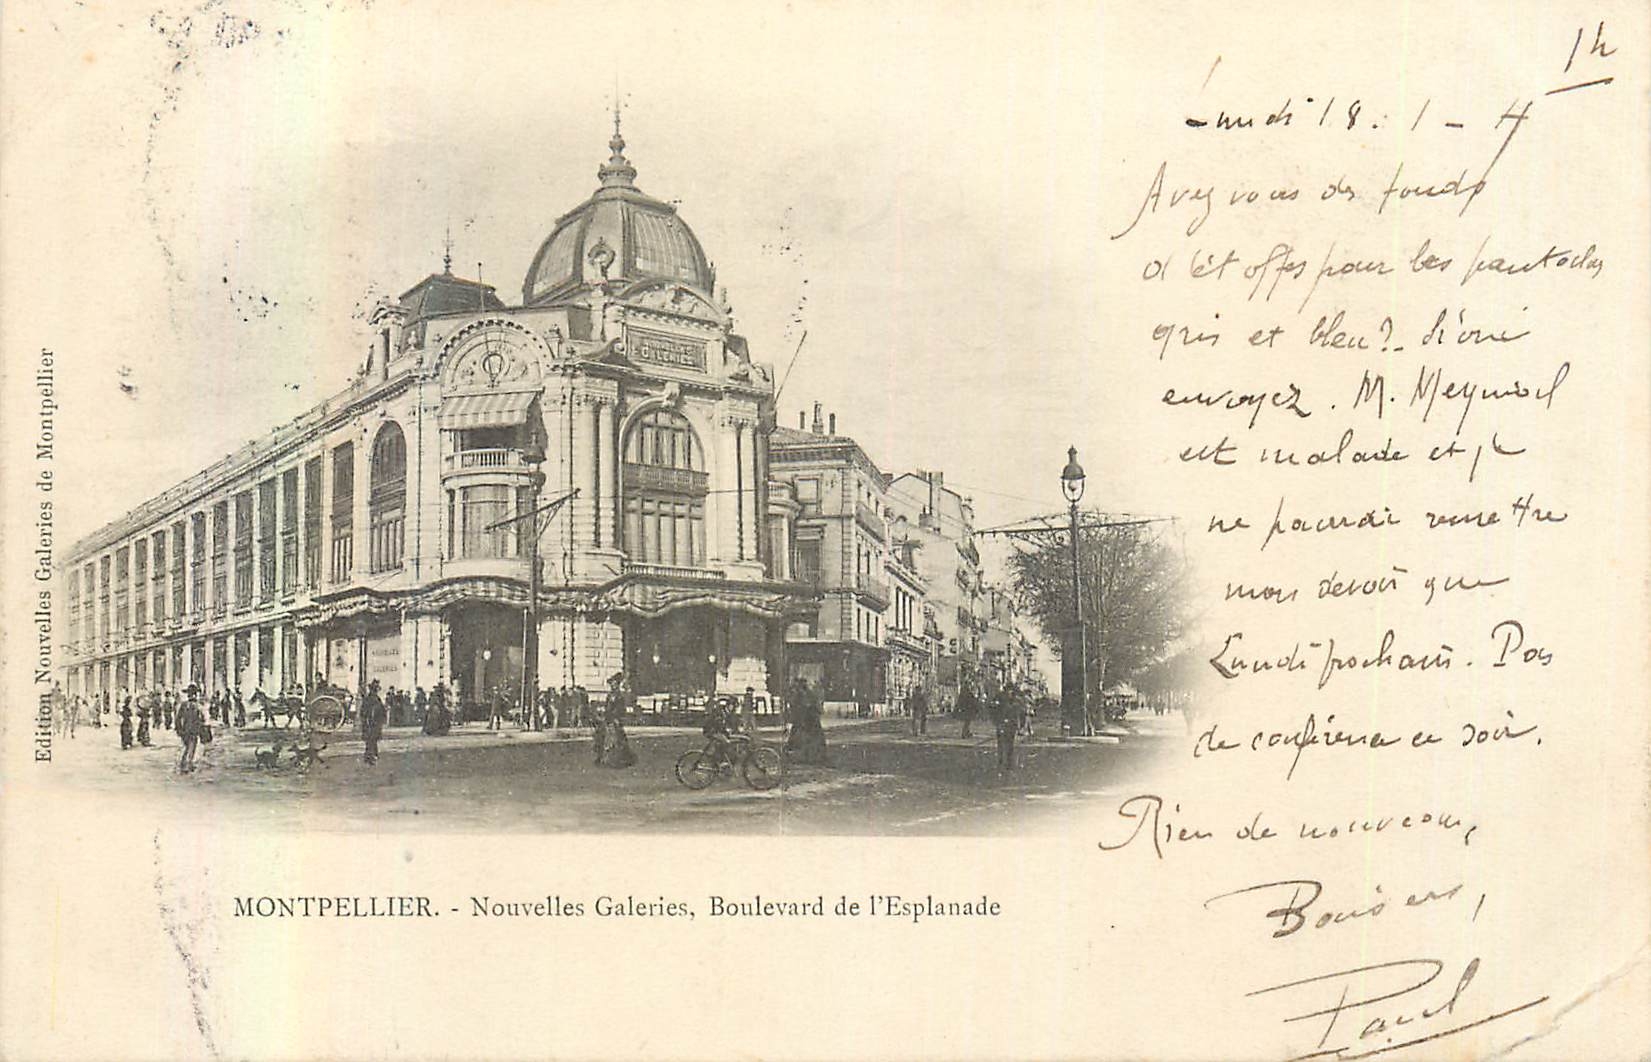 14
Lundi 18. 1 - 4
Avez vous des fonds
d'étoffes pour les pantoufles
gris et bleu?
envoyez. M. Meyniel
est malade et je
ne pourrai remettre
mon devoir que
Lundi prochain. Pas
de conférence ce soir.
Rien de nouveau,
Baisers,
Paul
GALERIES
NOUVELLES
GALERIES
Edition Nouvelles Galeries de Montpellier
MONTPELLIER. - Nouvelles Galeries, Boulevard de l'Esplanade